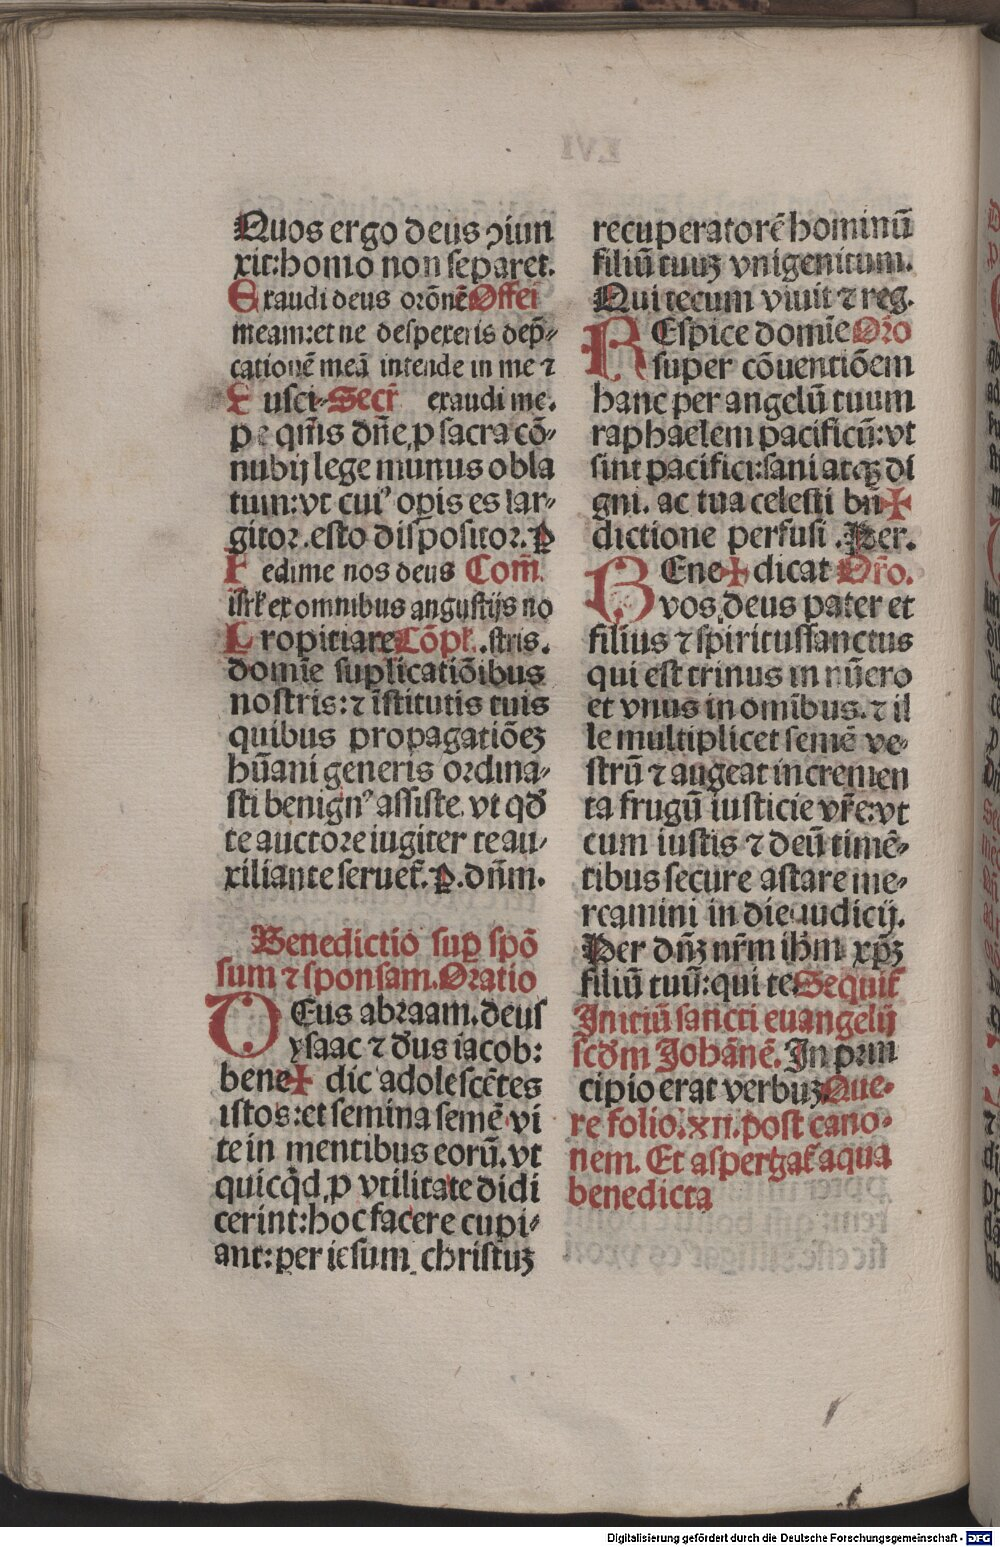 Quos ergo deus ꝯiun
xit: homo non separet.
Exaudi deus orōnē Offei
meam: et ne despexeris dep̄-
cationē meā intende in me ⁊
Susci- Secr̄ exaudi me.
pe qm̄s dn̄e, p sacra cō-
nubij lege munus obla
tum: vt cuiꝰ opis es lar-
gitor. esto dispositor. P
Redime nos deus Com̄.
isrl̄ ex omnibus angustijs no
Propitiare Cōpl̄. .stris.
domīe suplicatiōibus
nostris: ⁊ īstitutis tuis
quibus propagatiōeꝫ
hūani generis ordina-
sti benignꝰ assiste. vt qd̄
te auctore iugiter te au-
xiliante seruet̄. P. dn̄m.
Benedictio suꝑ spō
sum ⁊ sponsam. Oratio
DEus abraam. deus
ysaac ⁊ d̄us iacob:
bene✠dic adolescētes
istos: et semina semē vi
te in mentibus eorū. vt
quicq̄d ꝓ vtilitate didi
cerint: hoc facere cupi-
ant: per iesum christuꝫ
recuperatorē hominū
filiū tuuꝫ vnigenitum.
Qui tecum viuit ⁊ reg.
REspice domīe Oro
super cōuentiōem
hanc per angelū tuum
raphaelem pacificū: vt
sint pacifici: sani atqꝫ di
gni. ac tua celesti bn̄✠
dictione perfusi. Per.
BEne✠dicat Or̄o.
vos deus pater et
filius ⁊ spiritussanctus
qui est trinus in nūero
et vnus in omībus. ⁊ il
le multiplicet semē ve-
strū ⁊ augeat incremen
ta frugū iusticie vr̄e: vt
cum iustis ⁊ deū timē-
tibus secure astare me-
reamini in die iudicij.
Per dn̄ꝫ nr̄m ihm̄ xp̄ꝫ
filiū tuū: qui te Sequit̄
Initiū sancti euangelij
scd̄m Johānē. In prin
cipio erat verbuꝫ Que-
re folio. xii. post cano-
nem. Et aspergat̄ aqua
benedicta
Digitalisierung gefördert durch die Deutsche Forschungsgemeinschaft - DFG